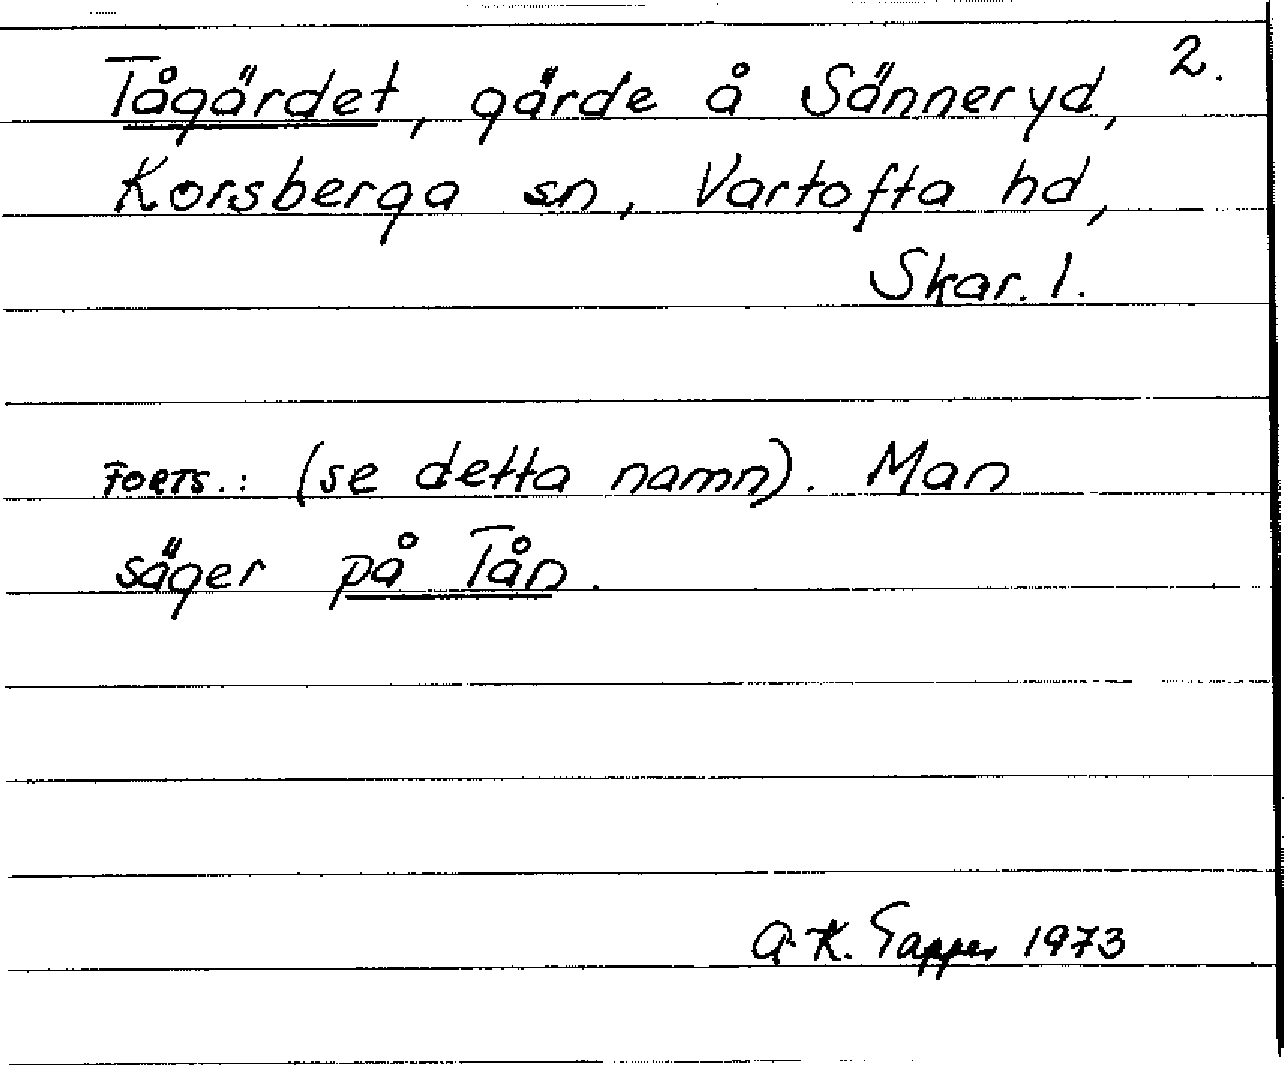 2.
Tågärdet, gärde å Sänneryd,
Korsberga sn, Vartofta hd,
Skar. l.
FORTS.: (se detta namn). Man
säger på Tån.
A-K. Tapper 1973